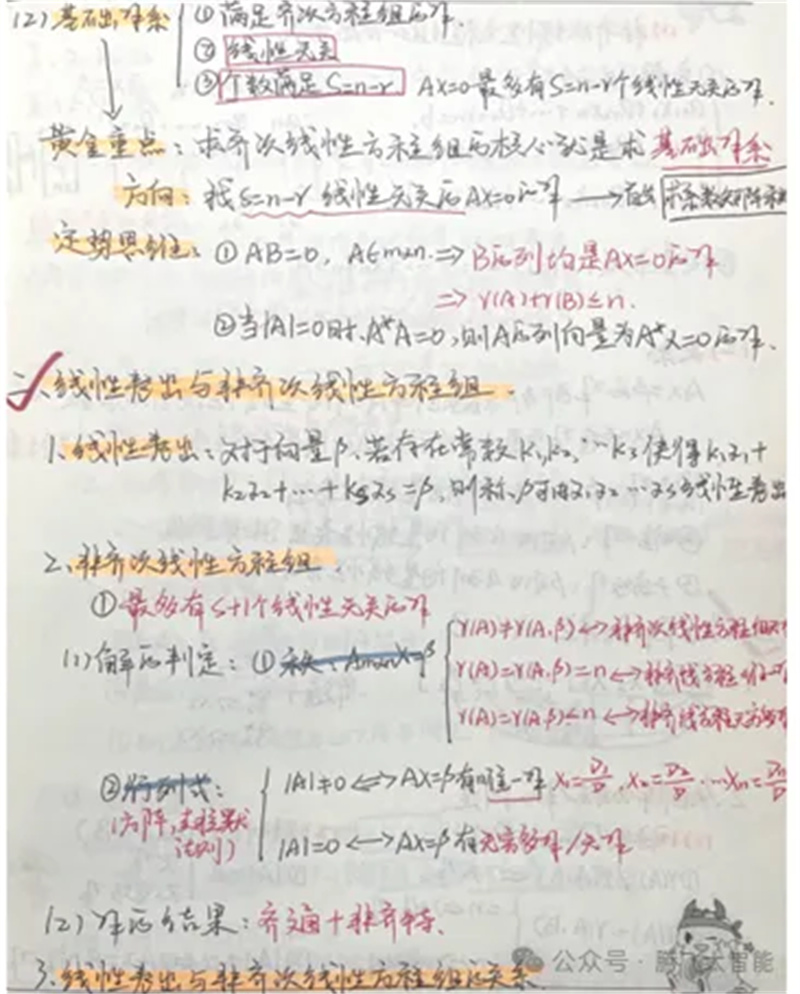 (2) 基础解系 ① 满足齐次方程组的解.
② 线性无关
③ 个数满足 S=n-r AX=0 最多有S=n-r个线性无关的解.
黄金重点: 求齐次线性方程组的核心就是求 基础解系
方向: 找 S=n-r 线性无关的AX=0的解 → 求系数矩阵
定势思维: ① AB=0, A∈m×n. ⇒ B的列均是AX=0的解
⇒ r(A)+r(B)≤n.
②当|A|=0时, A*A=0, 则A的列向量为A*x=0的解.
二、线性表出与非齐次线性方程组.
1. 线性表出: 对于向量β, 若存在常数k₁,k₂,…ks 使得k₁α₁+
k₂α₂+…+ksαs=β, 则称, β可由α₁α₂…αs线性表出
2、非齐次线性方程组
① 最多有S+1个线性无关的解
(1) 解的判定: ① Am×nX=β r(A)≠r(A,β) ↔ 非齐次线性方程组
r(A)=r(A,β)=n ↔ 非齐线方程
r(A)=r(A,β)≤n ↔ 非齐线方程
② 行列式: |A|≠0 ⟺ AX=β有唯一解 X₁=D₁/D, X₂=D₂/D …Xn=Dn/D
(方阵, 克拉默法则) |A|=0 ⟷ AX=β 有无穷多解/无解
(2) 解的结果: 齐通+非齐特.
公众号·鹏飞太智能
3. 线性表出与非齐次线性方程组的关系